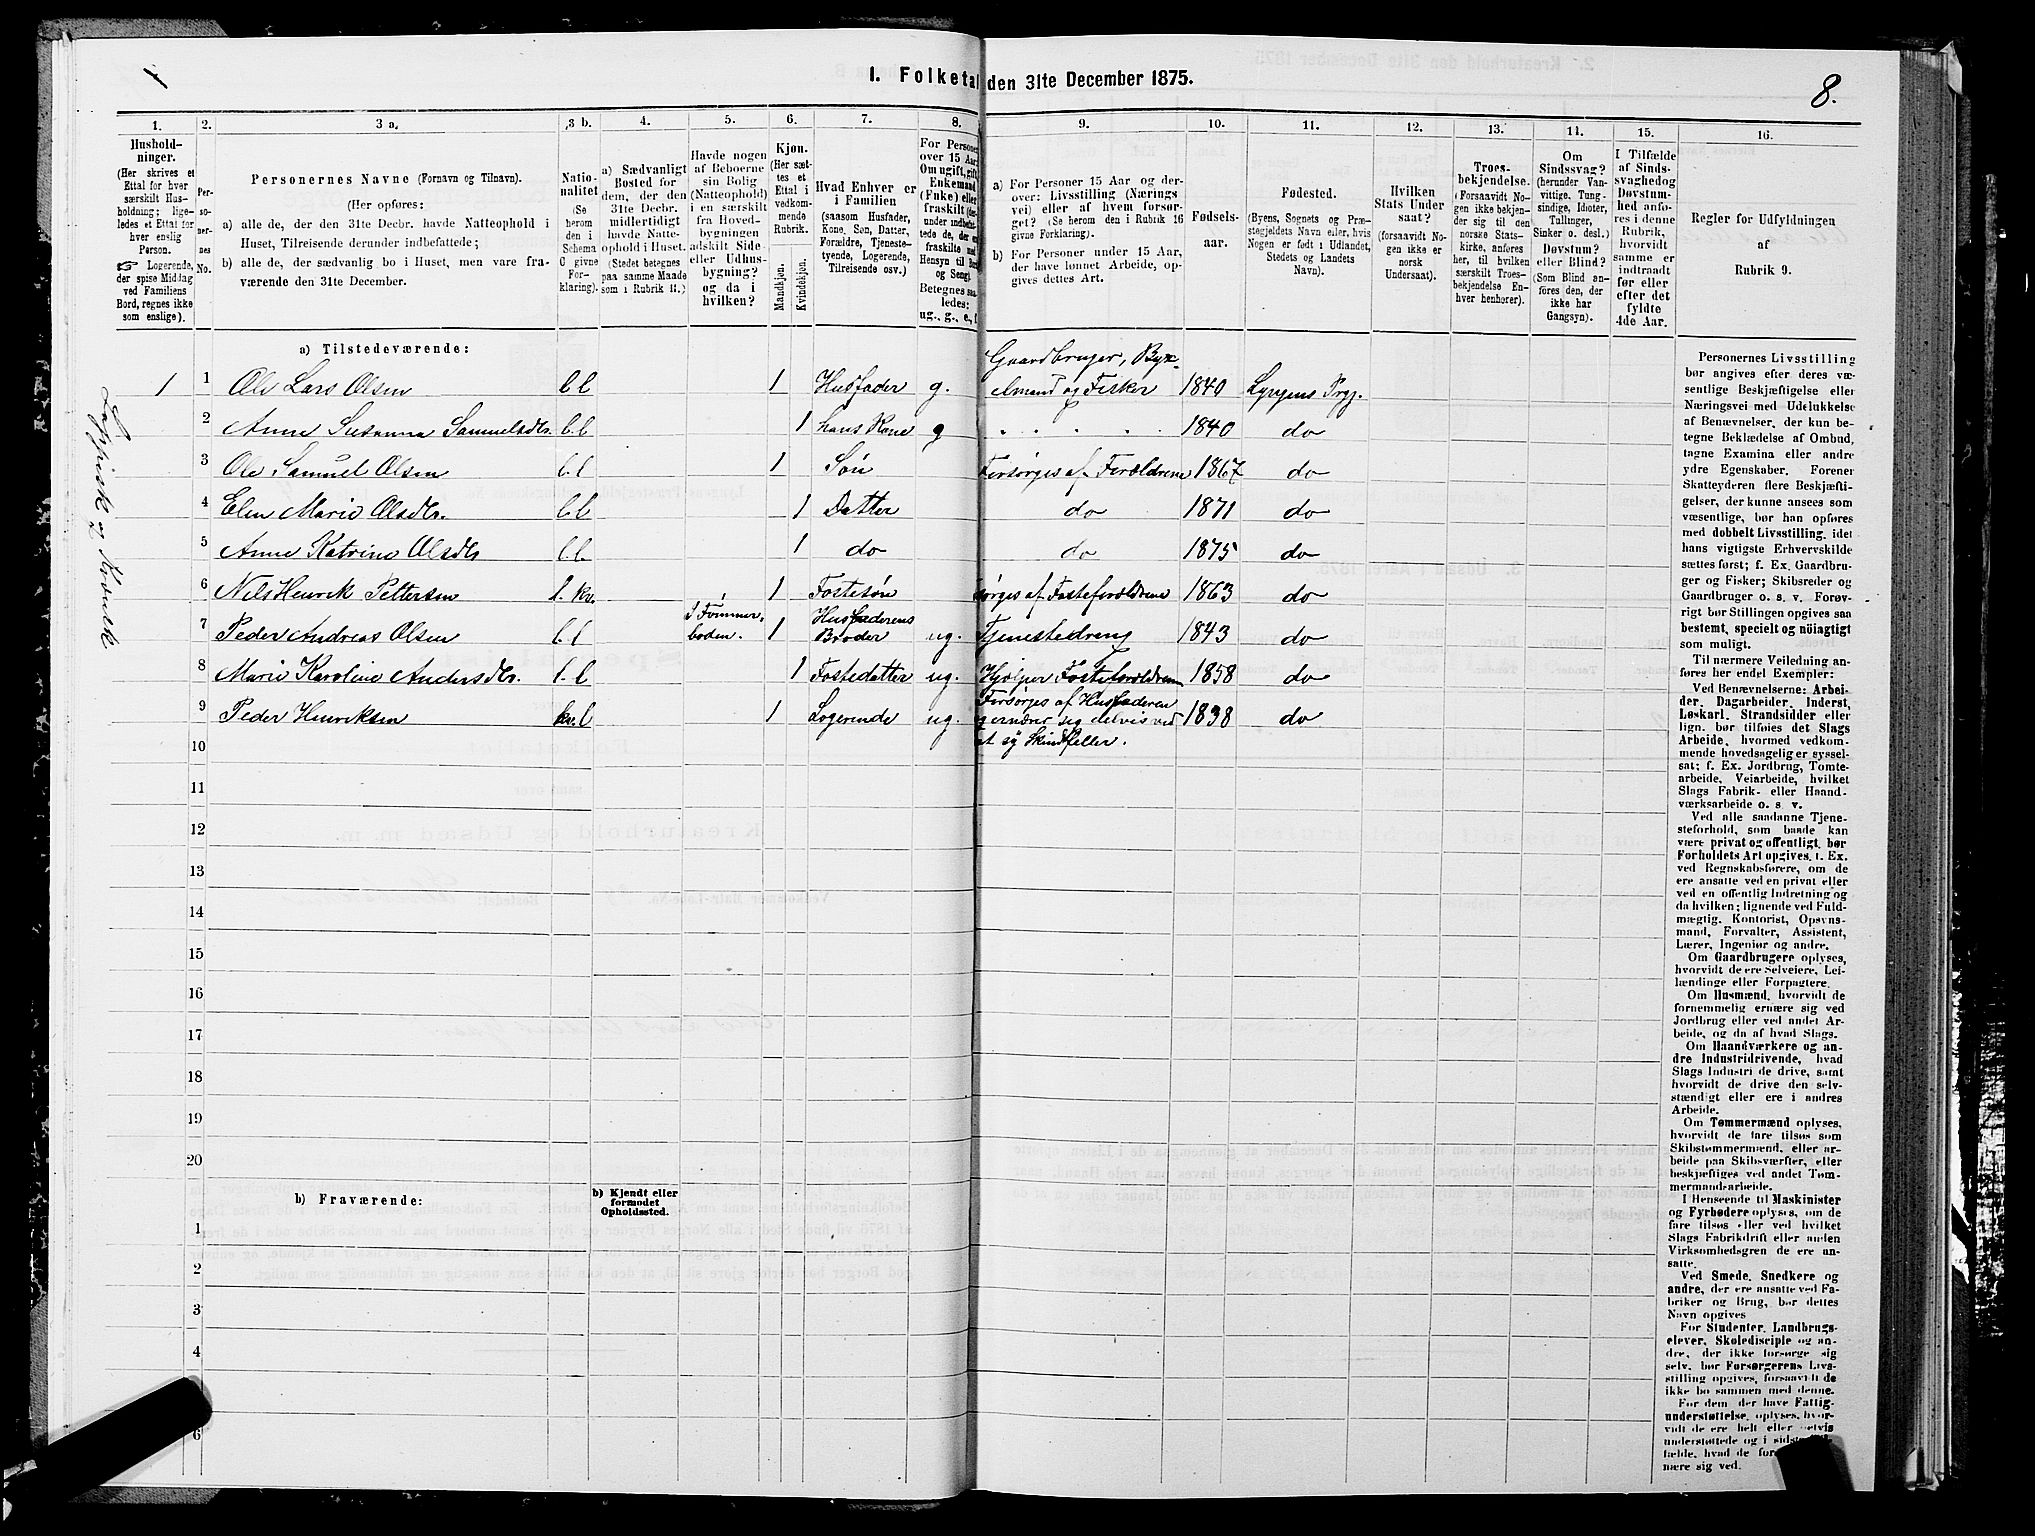 1
I. Folketal den 31te December 1875.
8.
1. 2. 3 a. 3 b. 4. 5. 6. 7. 8. 9. 10. 11. 12. 13. 14. 15. 16.
Hushold-
ninger.
(Her skrives et
Ettal for hver
særskilt Hus-
holdning; lige-
ledes et Ettal for
hver enslig
Person.
☞ Logerende,
der spise Middag
ved Familiens
Bord, regnes ikke
som enslige).
Per-
so-
ner-
nes
No.
Personernes Navne (Fornavn og Tilnavn).
(Her opføres:
a) alle de, der den 31te Decbr. havde Natteophold i
Huset, Tilreisende derunder indbefattede;
b) alle de, der sædvanlig bo i Huset, men vare fra-
værende den 31te December.
Natio-
nalitet
(Se
herom
den i
Schema
C givne
For-
klaring).
a) Sædvanligt
Bosted for
dem, der den
31te Decbr.
midlertidigt
havde Natte-
ophold i Huset.
(Stedet betegnes
paa samme Maade
som i Rubrik 11.)
Havde nogen
af Beboerne
sin Bolig
(Natteophold)
i en særskilt
fra Hoved-
bygningen
adskilt Side-
eller Udhus-
bygning?
og da i
hvilken?
Kjøn.
(Her sæt-
tes et
Ettal i
vedkom-
mende
Rubrik.
Mandkjøn.
Kvindekjøn.
Hvad Enhver er
i Familien
(saasom Husfader,
Kone, Søn, Datter,
Forældre, Tjeneste-
tyende, Logerende,
Tilreisende osv.)
For Personer
over 15 Aar:
Om ugift, gift,
Enkemand
(Enke) eller
fraskilt
fraskilte med
Hensyn til Bord
og Seng).
Betegnes saa-
ledes:
ug., g., e., f.
a) For Personer 15 Aar og der-
over: Livsstilling (Nærings-
vei) eller af hvem forsør-
get? (Se herom den i Rubrik 16
givne Forklaring).
b) For Personer under 15 Aar,
der have lønnet Arbeide, op-
gives dettes Art.
Fødsels-
aar.
Fødested.
(Byens, Sognets og Præ-
stegjeldets Navn eller, hvis
Nogen er født i Udlandet,
Stedets og Landets
Navn).
Hvilken
Stats Under
saat?
(forsaavidt No-
gen ikke er
norsk
Undersaat).
Troes-
bekjendelse.
(Forsaavidt No-
gen ikke bekjen-
der sig til den
norske Stats-
kirke, anføres
her, til hvilken
særskilt Troes-
bekjendelse En-
hver henhører).
Om
Sindssvag?
(herunder Van-
vittige, Tung-
sindige, Idioter,
Tullinger,
Sinker o. desl.)
Døvstum?
eller Blind?
(Som Blind an-
føres den, der
ikke har
Gangsyn).
I Tilfælde
af Sinds-
svaghed og
Døvstum-
hed anfø-
res i denne
Rubrik,
hvorvidt
samme er
indtraadt
før eller
efter det
fyldte
4de Aar.
Regler for Udfyldningen
af
Rubrik 9.
a) Tilstedeværende:
Lappisk og Kvænsk
1 1 Ole Lars Olsen l.l 1 Husfader g. Gaardbruger, Byx-
elmand og Fisker 1840 Lyngens Prgj.
2 Anne Susanna Samuelsdtr. l.l 1 hans Kone g 1840 do
3 Ole Samuel Olsen l.l 1 Søn Forsørges af Forældrene 1867 do
4 Elen Marie Olsdtr. l.l 1 Datter do 1871 do
5 Anne Katrine Olsdtr l.l 1 do do 1875 do
6 Nils Henrik Pettersen l. kv. 1 Fostesøn sørges af Fosteforældrene 1863 do
7 Peder Andreas Olsen l.l I Tømmer-
boden. 1 Husfaderens
Broder ug. Tjenestedreng 1843 do
8 Marie Karoline Andersdtr. l.l 1 Fostedatter ug. Hjælper Fosteforældrene 1858 do
9 Peder Henriksen kv.l 1 Logerende ug. Forsørges af Husfaderen
g ernærer sig delvis ved
at sy Skindfeller. 1838 do
10
11
12
13
14
15
16
17
18
19
20
b) Fraværende:
b) Kjendt eller
formodet
Opholdssted.
1
2
3
4
6
Personernes Livsstilling
bør angives efter deres væ-
sentlige Beskjæftigelse eller
Næringsvei med Udelukkelse
af Benævnelser, der kun be-
tegne Beklædelse af Ombud,
tagne Examina eller andre
ydre Egenskaber. Forener
Skatteyderen flere Beskjæfti-
gelser, der kunne ansees som
væsentlige, bør han opføres
med dobbelt Livsstilling, idet
hans vigtigste Erhvervskilde
sættes først; f. Ex. Gaardbru-
ger og Fisker; Skibsreder og
Gaardbruger o. s. v. Forøv-
rigt bør Stillingen opgives saa
bestemt, specielt og nöiagtigt
som muligt.
Til nærmere Veiledning an-
føres her endel Exempler:
Ved Benævnelserne: Arbei-
der, Dagarbeider, Inderst,
Løskarl, Strandsidder eller
lign. bør tilføies det Slags
Arbeide, hvormed vedkom-
mende hovedsagelig er syssel-
sat; f. Ex. Jordbrug, Tomte-
arbeide, Veiarbeide, hvilket
Slags Fabrik- eller Haand-
værksarbeide o. s. v.
Ved alle saadanne Tjene-
steforhold, som baade kan
være privat og offentligt, bør
Forholdets Art opgives, f. Ex.
ved Regnskabsførere, om de
ere ansatte ved en privat eller
ved en offentlig Indretning og
da hvilken; lignende ved Fuld-
mægtig, Kontorist, Opsyns-
mand, Forvalter, Assistent,
Lærer, Ingeniør og andre.
Om Gaardbrugere oplyses,
hvorvidt de ere Selveiere, Lei-
lændinge eller Forpagtere.
Om Husmænd, hvorvidt de
fornemmelig ernære sig ved
Jordbrug eller ved andet Ar-
beide, og da af hvad Slags.
Om Haandværkere og an-
dre Industridrivende, hvad
Slags Industri de drive, samt
hvorvidt de drive den selv-
stændigt eller ere i andres
Arbeide.
Om Tømmermænd oplyses,
hvorvidt de fare tilsøs som
Skibstømmermænd, eller ar-
beide paa Skibsværfter, eller
beskjæftiges ved andet Tøm-
mermandsarbeide.
I Henseende til Maskinister
og Fyrbødere oplyses, om de
fare tilsøs eller ved hvilket
Slags Fabrikdrift eller anden
Virksomhedsgren de ere an-
satte.
Ved Smede, Snedkere og
andre, der ere ansatte ved Fa-
briker og Brug, bør dettes
Navn opgives
For Studenter, Landbrugs-
elever, Skoledisciple og an-
dre, der ikke forsørge sig
selv, bør Forsørgerens Livs-
stilling opgives, forsaavidt de
ikke bo sammen med denne.
For dem, der have Fattig-
understøttelse, oplyses, hvor-
vidt de ere helt eller delvis
understøttede og i sidste Til-
fælde, hvad de
nære sig ved.